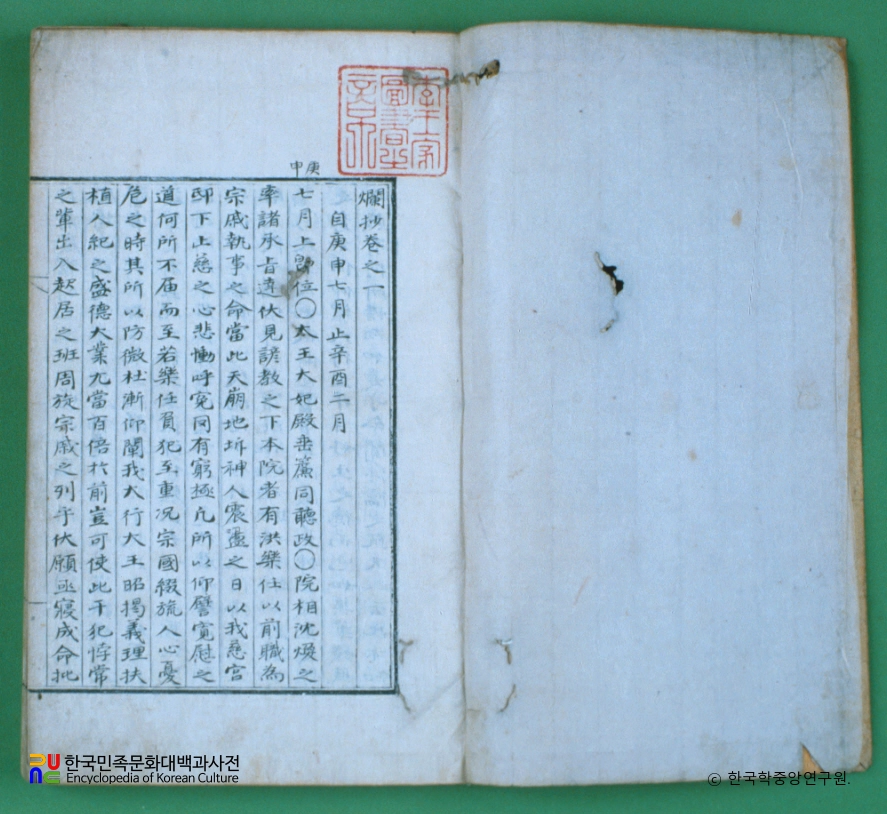 庚申
爛抄卷之一
自庚申七月止辛酉二月
七月上卽位〇大王大妃殿垂簾同聽政〇院相沈煥之
率諸承旨達伏見諺敎之下本院者有洪樂任以前職為
宗戚執事之命當此天崩地坼神人震盪之日以我慈宮
邸下止慈之心悲慟呼寃罔有窮極凡所以仰譬寬慰之
道何所不届而至若樂任負犯至重況宗國綴旒人心憂
危之時其所以防微杜漸仰闡我大行大王昭揭義理扶
植人紀之盛德大業尤當百倍於前豈可使此干犯悖常
之輩出入起居之班周旋宗戚之列乎伏願亟寢成命批
李王家圖書之章
한국민족문화대백과사전
Encyclopedia of Korean Culture
© 한국학중앙연구원.